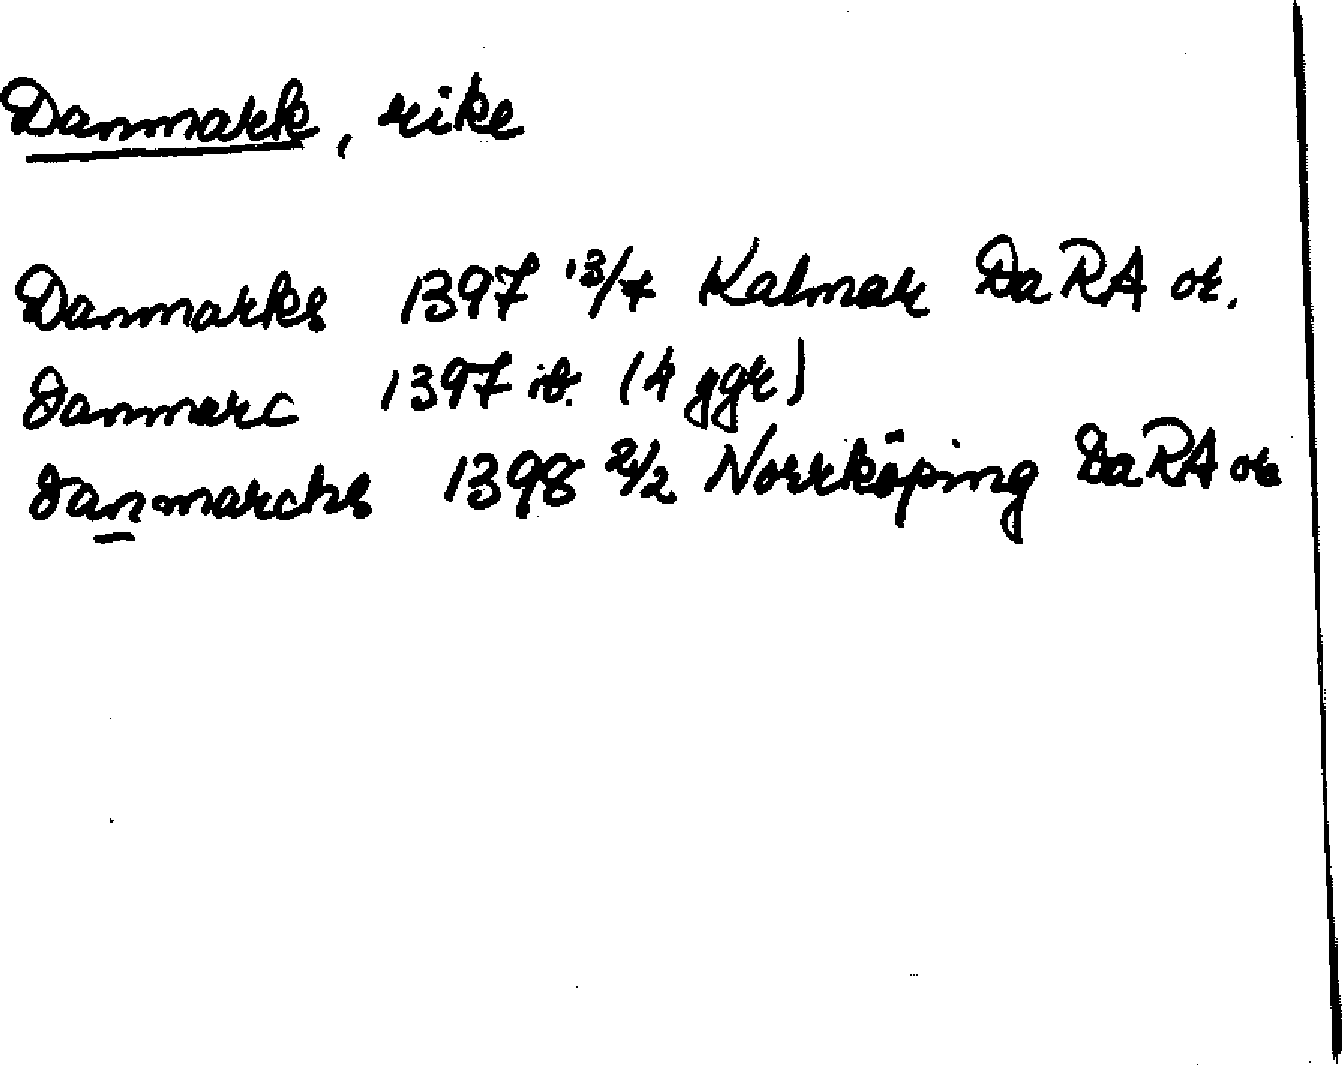 Danmark, rike
Danmarks 1397 13/7 Kalmar DaRA or.
danmarc 1397 ib. (4 ggr)
danmarchs 1398 2/2 Norrköping DaRA or